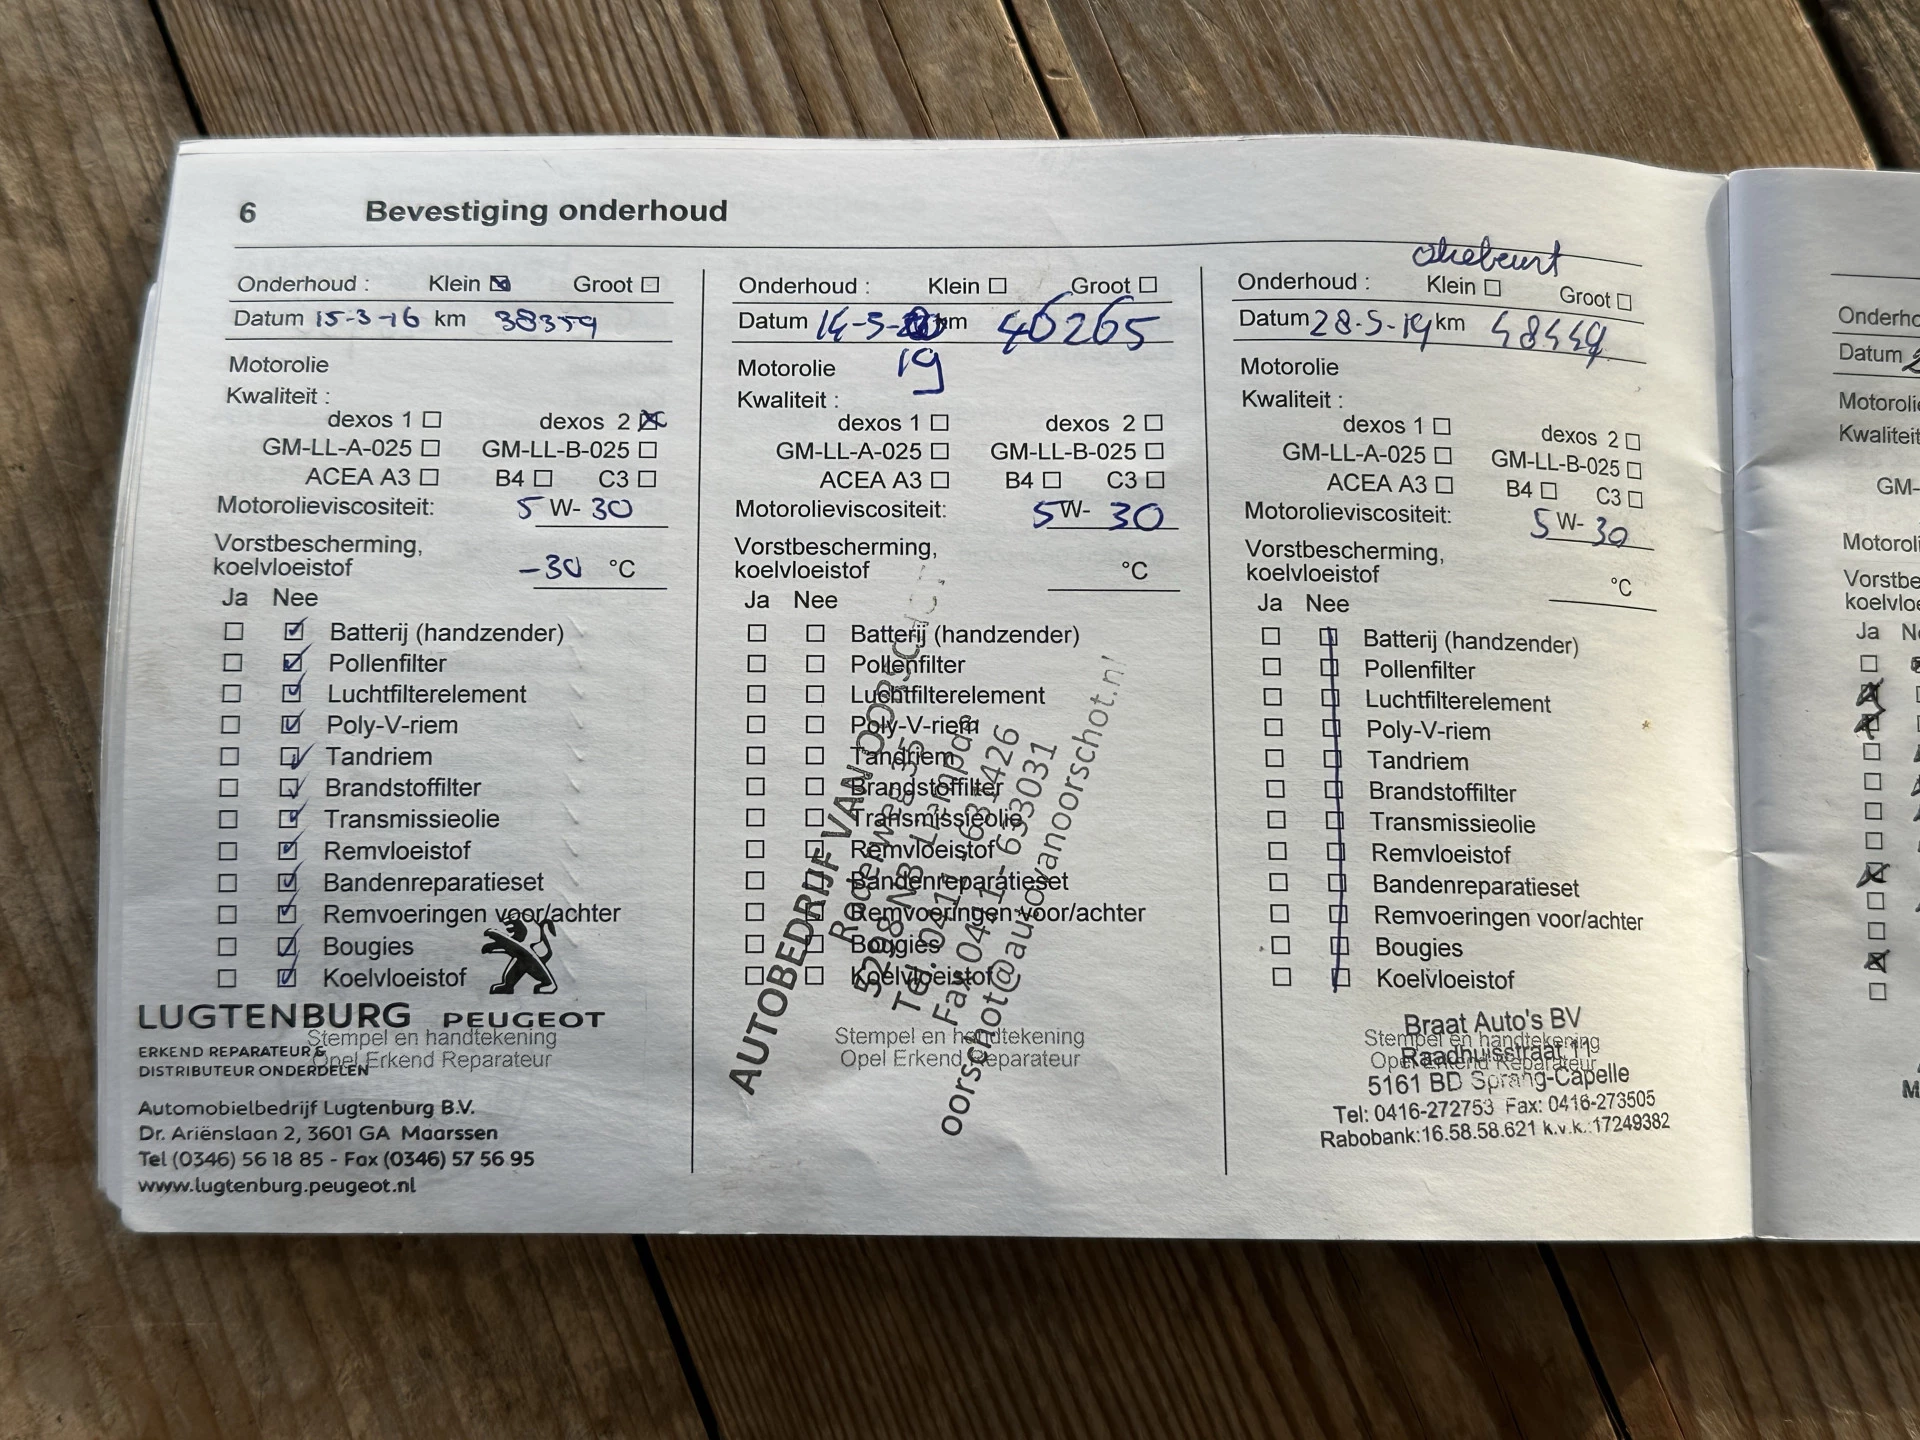 6 Bevestiging onderhoud
Onderhoud : Klein Groot
Datum 15-3-16 km 38359
Motorolie
Kwaliteit :
dexos 1 dexos 2
GM-LL-A-025 GM-LL-B-025
ACEA A3 B4 C3
Motorolieviscositeit: 5 W- 30
Vorstbescherming,
koelvloeistof -30 °C
Ja Nee
Batterij (handzender)
Pollenfilter
Luchtfilterelement
Poly-V-riem
Tandriem
Brandstoffilter
Transmissieolie
Remvloeistof
Bandenreparatieset
Remvoeringen voor/achter
Bougies
Koelvloeistof
LUGTENBURG PEUGEOT
Stempel en handtekening
Opel Erkend Reparateur
ERKEND REPARATEUR &
DISTRIBUTEUR ONDERDELEN
Automobielbedrijf Lugtenburg B.V.
Dr. Ariënslaan 2, 3601 GA Maarssen
Tel (0346) 56 18 85 - Fax (0346) 57 56 95
www.lugtenburg.peugeot.nl
Onderhoud : Klein Groot
Datum 14-3- km 46265
19
Motorolie
Kwaliteit :
dexos 1 dexos 2
GM-LL-A-025 GM-LL-B-025
ACEA A3 B4 C3
Motorolieviscositeit: 5 W- 30
Vorstbescherming,
koelvloeistof °C
Ja Nee
Batterij (handzender)
Pollenfilter
Luchtfilterelement
Poly-V-riem
Tandriem
Brandstoffilter
Transmissieolie
Remvloeistof
Bandenreparatieset
Remvoeringen voor/achter
Bougies
Koelvloeistof
Stempel en handtekening
Opel Erkend Reparateur
AUTOBEDRIJF VAN OORSCHOT
5298 NB
Tel. 0411 - 631426
Fax 0411 - 633031
oorschot@autovanoorschot.nl
Oliebeurt
Onderhoud : Klein Groot
Datum 28-5-19 km 48449
Motorolie
Kwaliteit :
dexos 1 dexos 2
GM-LL-A-025 GM-LL-B-025
ACEA A3 B4 C3
Motorolieviscositeit: 5 W- 30
Vorstbescherming,
koelvloeistof °C
Ja Nee
Batterij (handzender)
Pollenfilter
Luchtfilterelement
Poly-V-riem
Tandriem
Brandstoffilter
Transmissieolie
Remvloeistof
Bandenreparatieset
Remvoeringen voor/achter
Bougies
Koelvloeistof
Braat Auto's BV
Stempel en handtekening
Raadhuisstraat 11
Opel Erkend Reparateur
5161 BD Sprang-Capelle
Tel: 0416-272753 Fax: 0416-273505
Rabobank:16.58.58.621 k.v.k.:17249382
Onderho
Datum
Motorolie
Kwaliteit
GM-
Motoroli
Vorstbe
koelvloe
Ja N
M